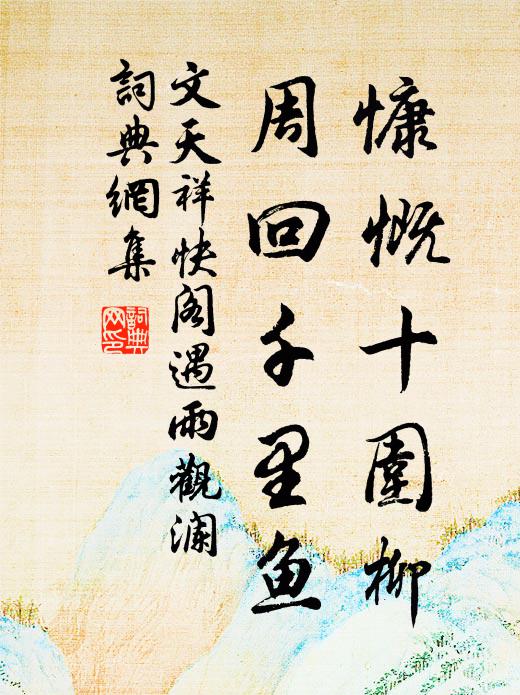 慷慨十圍柳
周回千里魚
文天祥快阁遇雨觀瀾
詞典網集
詞典网印